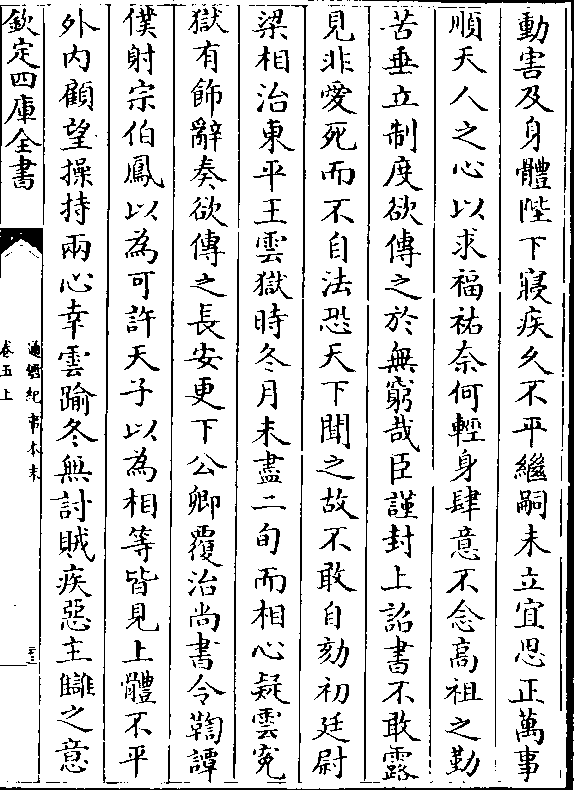 動害及身體陛下寢疾久不平繼嗣未立宜思正萬事
順天人之心以求福祐奈何輕身肆意不念高祖之勤
苦垂立制度欲傳之於無窮哉臣謹封上詔書不敢露
見非愛死而不自法恐天下聞之故不敢自劾初廷尉
梁相治東平王雲獄時冬月未盡二旬而相心疑雲寃
獄有飾辭奏欲傳之長安更下公卿覆治尚書令鞫譚
僕射宗伯鳳以為可許天子以為相等皆見上體不平
外内顧望操持兩心幸雲踰冬無討賊疾惡主讎之意
欽定四庫全書
通鑑紀事本末
卷五上